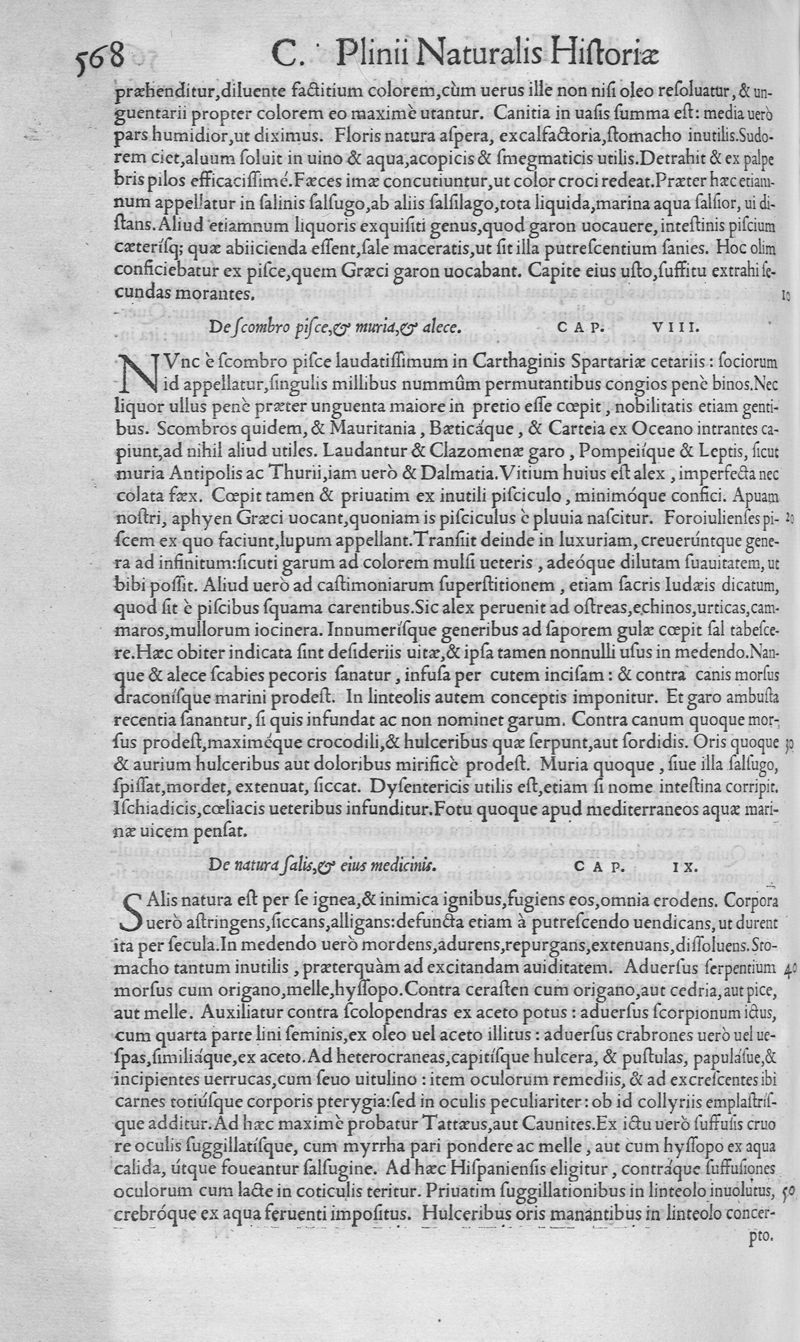 568 C. Plinii Naturalis Hiſtoriæ
præhenditur,diluente factitium colorem,cùm uerus ille non niſi oleo reſoluatur, & un-
guentarii propter colorem eo maximè utantur. Canitia in uaſis ſumma eſt: media uerò
pars humidior,ut diximus. Floris natura aſpera, excalfactoria,ſtomacho inutilis.Sudo-
rem ciet,aluum ſoluit in uino & aqua,acopicis & ſmegmaticis utilis.Detrahit & ex palpe
bris pilos efficaciſſimé.Fæces imæ concutiuntur,ut color croci redeat.Præter hæc etiam-
num appellatur in ſalinis ſalſugo,ab aliis ſalſilago,tota liquida,marina aqua ſalſior, ui di-
ſtans.Aliud etiamnum liquoris exquiſiti genus,quod garon uocauere,inteſtinis piſcium
cæteriſq; quæ abiicienda eſſent,ſale maceratis,ut ſit illa putreſcentium ſanies. Hoc olim
conficiebatur ex piſce,quem Græci garon uocabant. Capite eius uſto,ſuffitu extrahi ſe-
cundas morantes. 10
De ſcombro piſce,& muria,& alece. CAP. VIII.
NVnc è ſcombro piſce laudatiſſimum in Carthaginis Spartariæ cetariis : ſociorum
id appellatur,ſingulis millibus nummûm permutantibus congios penè binos.Nec
liquor ullus penè præter unguenta maiore in pretio eſſe cœpit, nobilitatis etiam genti-
bus. Scombros quidem, & Mauritania, Bæticáque, & Carteia ex Oceano intrantes ca-
piunt,ad nihil aliud utiles. Laudantur & Clazomenæ garo, Pompeiíque & Leptis, ſicut
muria Antipolis ac Thurii,iam uerò & Dalmatia.Vitium huius eſt alex, imperfecta nec
colata fæx. Cœpit tamen & priuatim ex inutili piſciculo, minimóque confici. Apuam
noſtri, aphyen Græci uocant,quoniam is piſciculus è pluuia naſcitur. Foroiulienſes pi- 20
ſcem ex quo faciunt,lupum appellant.Tranſiit deinde in luxuriam, creuerúntque gene-
ra ad infinitum:ſicuti garum ad colorem mulſi ueteris, adeóque dilutam ſuauitatem, ut
bibi poſſit. Aliud uerò ad caſtimoniarum ſuperſtitionem, etiam ſacris Iudæis dicatum,
quod ſit è piſcibus ſquama carentibus.Sic alex peruenit ad oſtreas,echinos,urticas,cam-
maros,mullorum iocinera. Innumeriſque generibus ad ſaporem gulæ cœpit ſal tabeſce-
re.Hæc obiter indicata ſint deſideriis uitæ,& ipſa tamen nonnulli uſus in medendo.Nan-
que & alece ſcabies pecoris ſanatur, infuſa per cutem inciſam : & contra canis morſus
draconiſque marini prodeſt. In linteolis autem conceptis imponitur. Et garo ambuſta
recentia ſanantur, ſi quis infundat ac non nominet garum. Contra canum quoque mor-
ſus prodeſt,maximéque crocodili,& hulceribus quæ ſerpunt,aut ſordidis. Oris quoque 30
& aurium hulceribus aut doloribus mirificè prodeſt. Muria quoque, ſiue illa ſalſugo,
ſpiſſat,mordet, extenuat, ſiccat. Dyſentericis utilis eſt,etiam ſi nome inteſtina corripit.
Iſchiadicis,cœliacis ueteribus infunditur.Fotu quoque apud mediterraneos aquæ mari-
næ uicem penſat.
De natura ſalis,& eius medicinis. CAP. IX.
SAlis natura eſt per ſe ignea,& inimica ignibus,fugiens eos,omnia erodens. Corpora
uerò aſtringens,ſiccans,alligans:defuncta etiam à putreſcendo uendicans, ut durent
ita per ſecula.In medendo uerò mordens,adurens,repurgans,extenuans,diſſoluens.Sto-
macho tantum inutilis, præterquàm ad excitandam auiditatem. Aduerſus ſerpentium 40
morſus cum origano,melle,hyſſopo.Contra ceraſten cum origano,aut cedria,aut pice,
aut melle. Auxiliatur contra ſcolopendras ex aceto potus : aduerſus ſcorpionum ictus,
cum quarta parte lini ſeminis,ex oleo uel aceto illitus : aduerſus crabrones uerò uel ue-
ſpas,ſimiliáque,ex aceto.Ad heterocraneas,capitíſque hulcera, & puſtulas, papuláſue,&
incipientes uerrucas,cum ſeuo uitulino : item oculorum remediis, & ad excreſcentes ibi
carnes totiúſque corporis pterygia:ſed in oculis peculiariter: ob id collyriis emplaſtríſ-
que additur.Ad hæc maximè probatur Tattæus,aut Caunites.Ex ictu uerò ſuffuſis cruo
re oculis ſuggillatiſque, cum myrrha pari pondere ac melle, aut cum hyſſopo ex aqua
calida, útque foueantur ſalſugine. Ad hæc Hiſpanienſis eligitur, contráque ſuffuſiones
oculorum cum lacte in coticulis teritur. Priuatim ſuggillationibus in linteolo inuolutus, 50
crebróque ex aqua feruenti impoſitus. Hulceribus oris manantibus in linteolo concer-
pto.